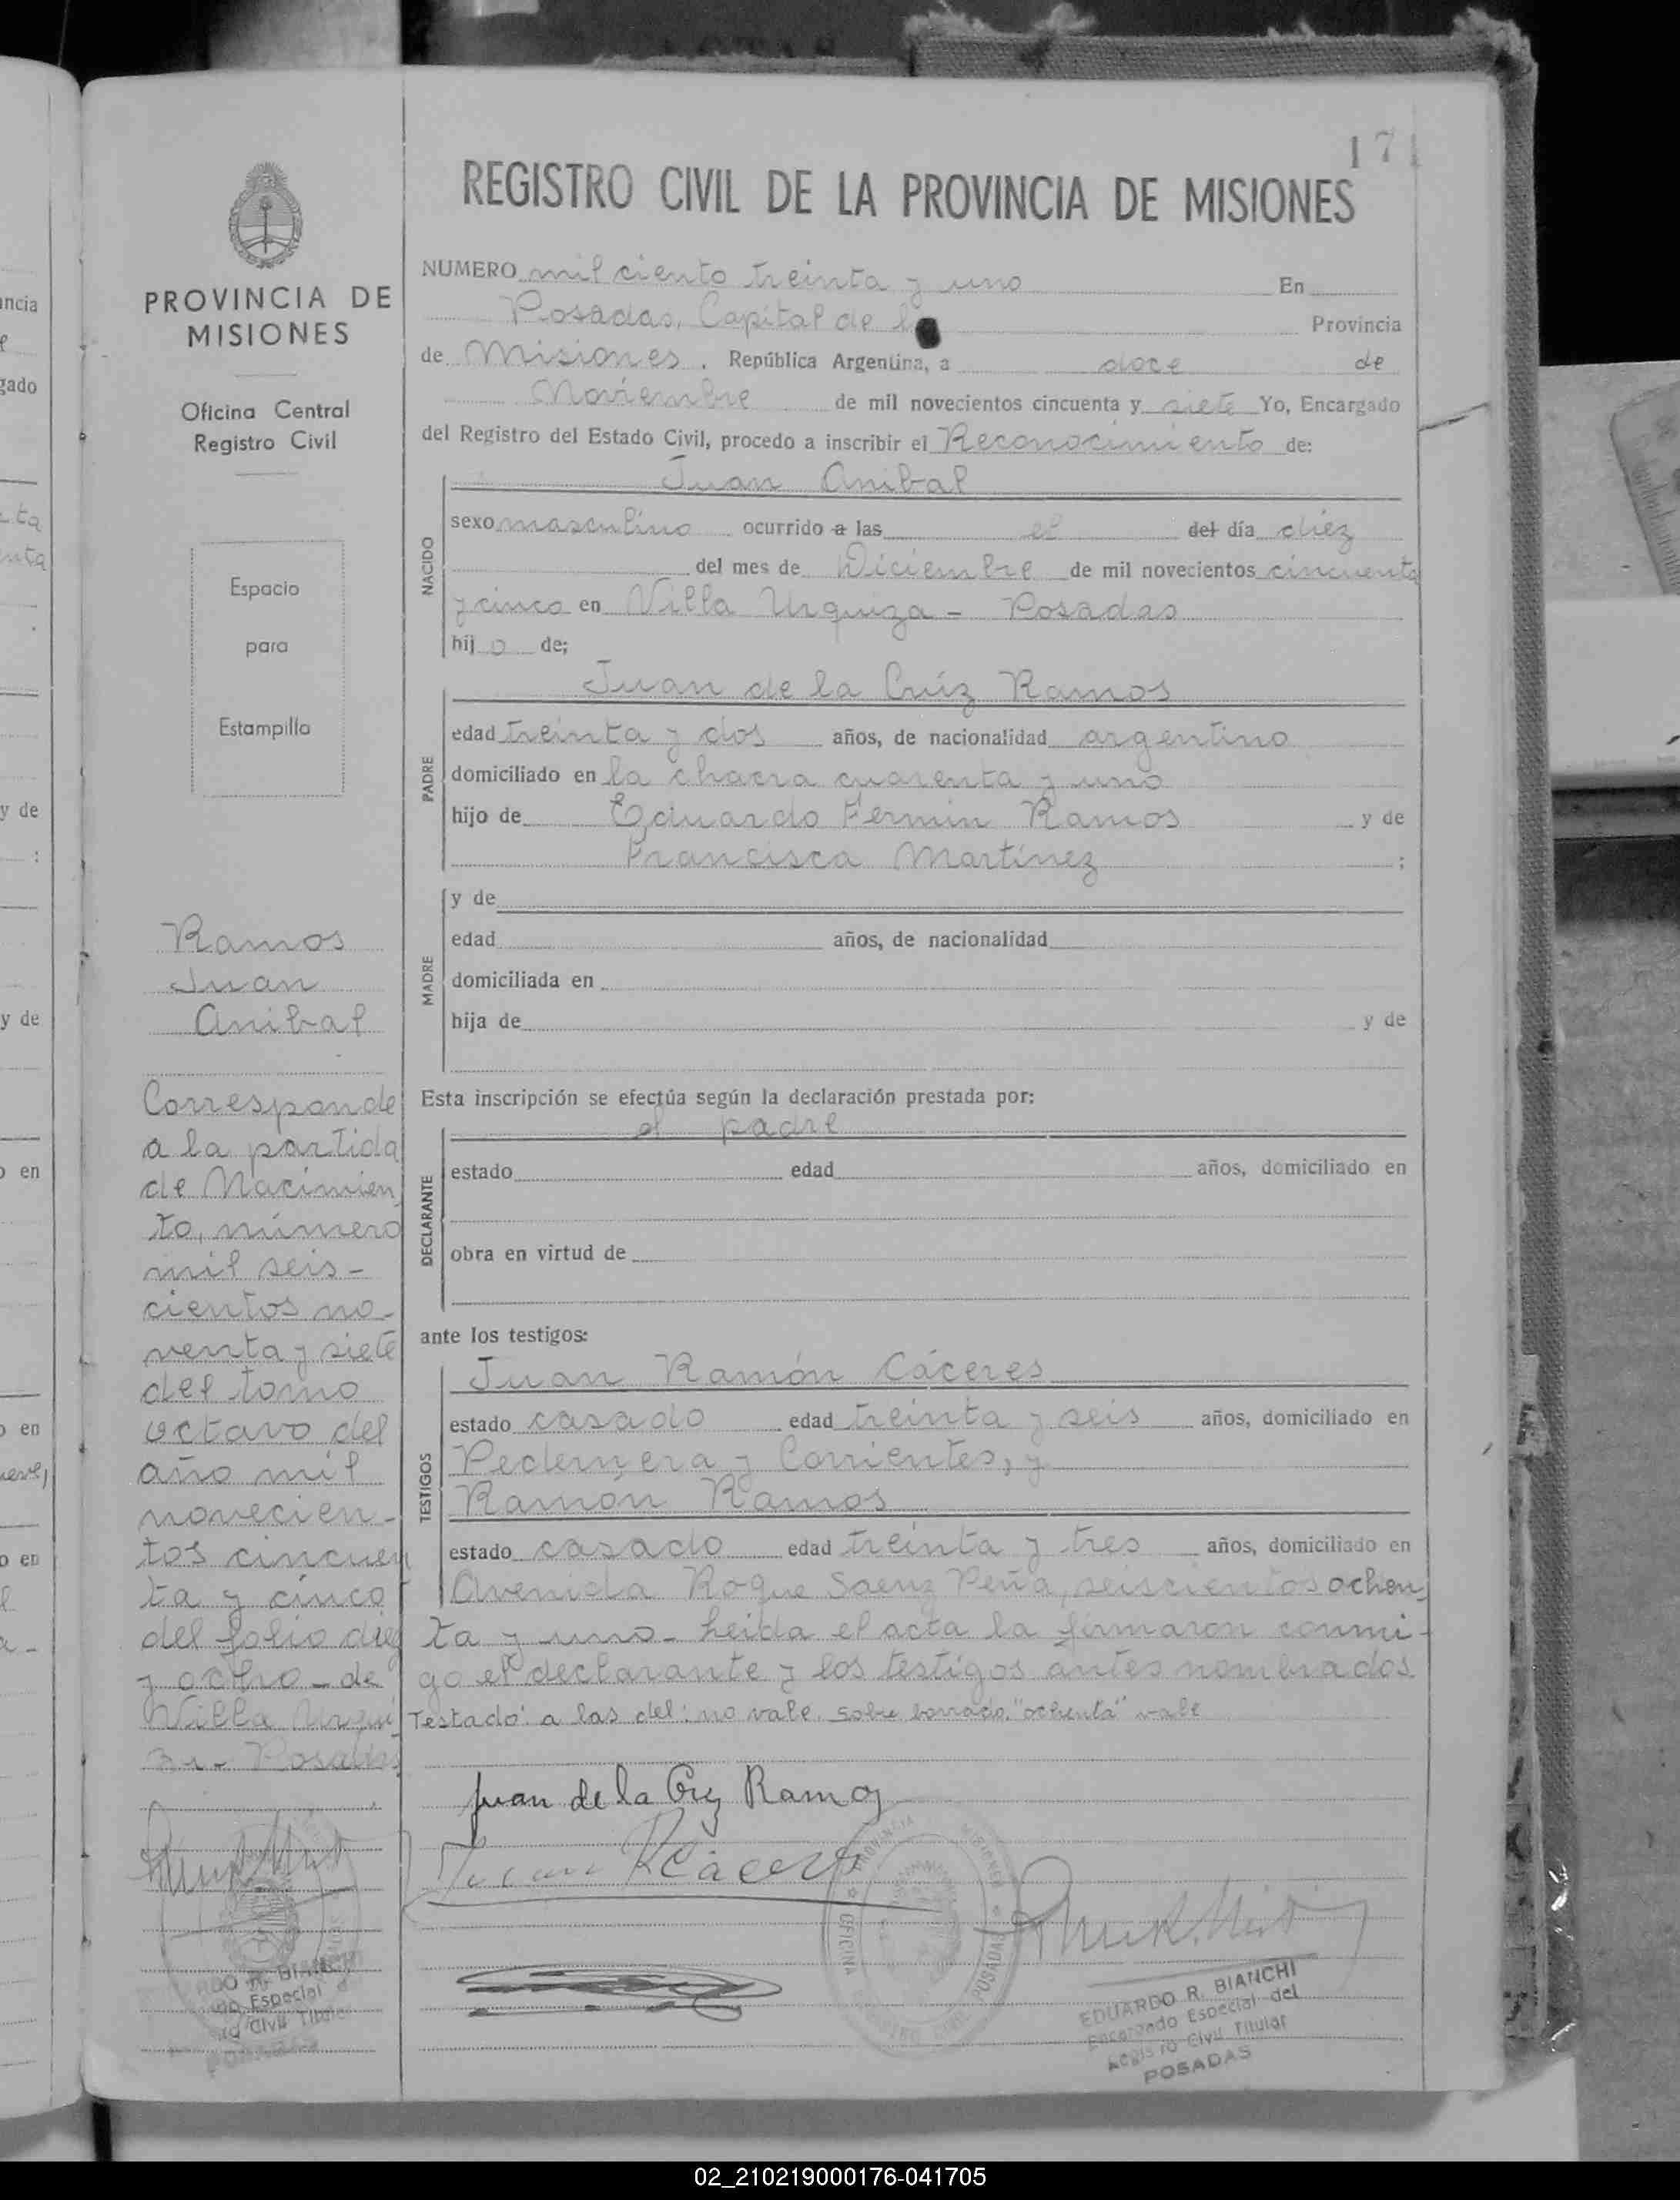 171
REGISTRO CIVIL DE LA PROVINCIA DE MISIONES
PROVINCIA DE
MISIONES
Oficina Central
Registro Civil
Espacio
para
Estampilla
Ramos
Juan
Anibal
Corresponde
a la partida
de Nacimien
to, número
mil seis-
cientos no-
venta y siete
del tomo
octavo del
año mil
novecien-
tos cincuen
ta y cinco
del folio diez
y ocho - de
Villa Urqui
za - Posadas
NUMERO mil ciento treinta y uno En
Posadas, Capital de la Provincia
de Misiones. República Argentina, a doce de
Noviembre de mil novecientos cincuenta y siete Yo, Encargado
del Registro del Estado Civil, procedo a inscribir el Reconocimiento de:
Juan Anibal
NACIDO
sexo masculino ocurrido a las el del día diéz
del mes de Diciembre de mil novecientos cincuenta
y cinco en Villa Urquiza - Posadas
hij o de;
Juan de la Crúz Ramos
PADRE
edad treinta y dos años, de nacionalidad argentino
domiciliado en la chacra cuarenta y uno
hijo de Eduardo Fermin Ramos y de
Francisca Martínez ;
MADRE
y de
edad años, de nacionalidad
domiciliada en
hija de y de
Esta inscripción se efectúa según la declaración prestada por:
el padre
DECLARANTE
estado edad años, domiciliado en
obra en virtud de
ante los testigos:
Juan Ramón Cáceres
TESTIGOS
estado casado edad treinta y seis años, domiciliado en
Pedernera y Corrientes, y
Ramón Ramos
estado casado edad treinta y tres años, domiciliado en
Avenida Roque Saenz Peña, seiscientos ochen
ta y uno - Leida el acta la firmaron conmi-
go el declarante y los testigos antes nombrados.
Testado: a las del: no vale. sobre borrado: "ochenta" vale
Juan de la Cruz Ramos
Juan R Caceres
PROVINCIA MISIONES
OFICINA POSADAS
EDUARDO R. BIANCHI
Encargado Especial del
Registro Civil Titular
POSADAS
02_210219000176-041705